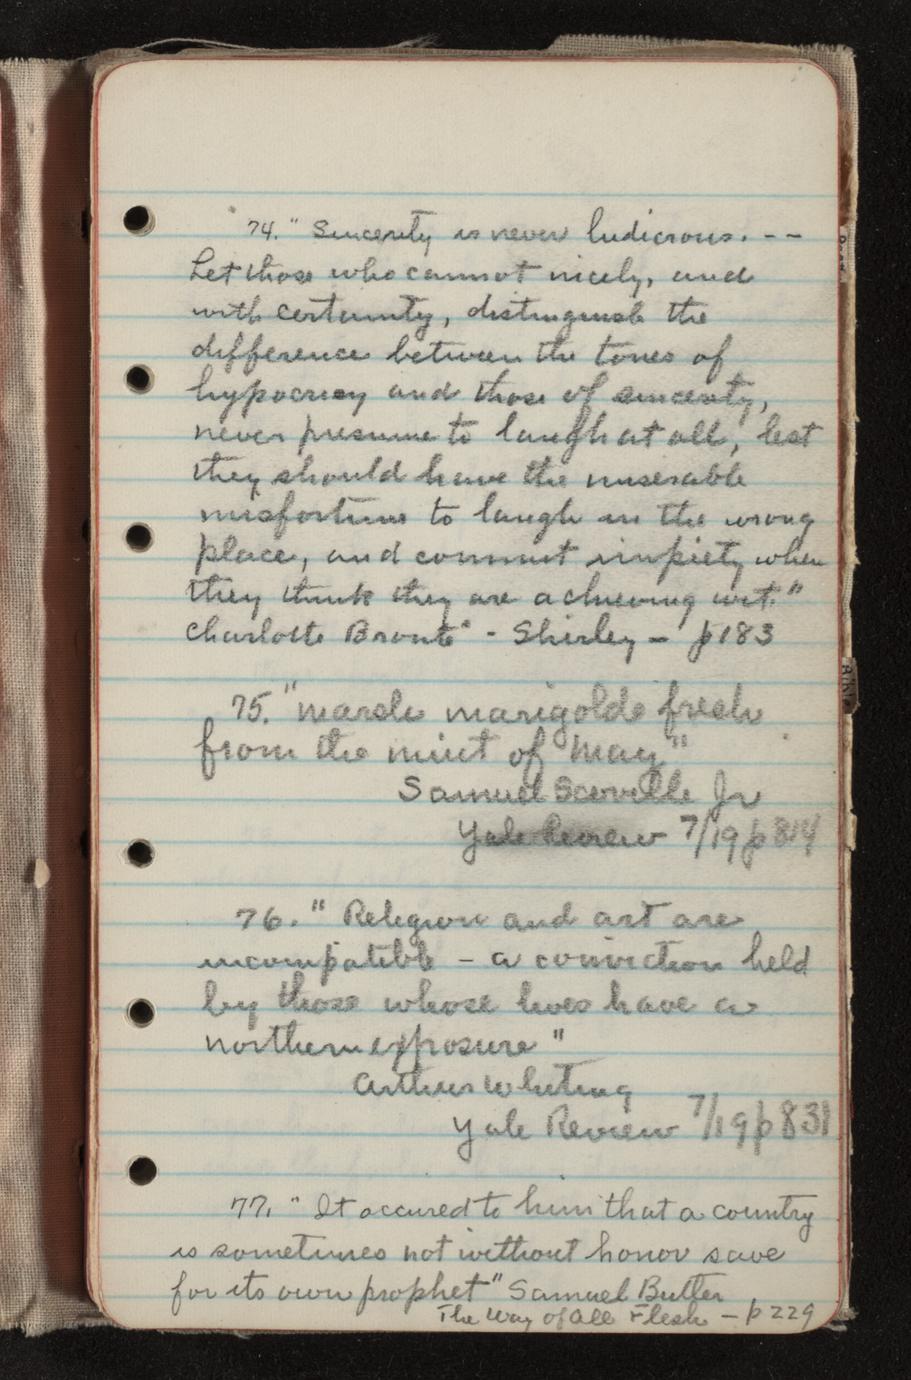 74. " Sincerity is never ludicrous. --
Let those who cannot nicely, and
with certainty, distinguish the
difference between the tones of
hypocrisy and those of sincerity,
never presume to laugh at all, lest
they should have the miserable
misfortune to laugh in the wrong
place, and commit impiety when
they think they are achieving wit."
Charlotte Brontë - Shirley - p183
75. "marsh marigolds fresh
from the mint of May"
Samuel Scoville Jr
Yale Review 7/19 p 814
76. " Religion and art are
incompatible - a conviction held
by those whose lives have a
northern exposure "
Arthur Whiting
Yale Review 7/19 p 831
77. " It occured to him that a country
is sometimes not without honor save
for its own prophet" Samuel Butler
The Way of All Flesh - p 229